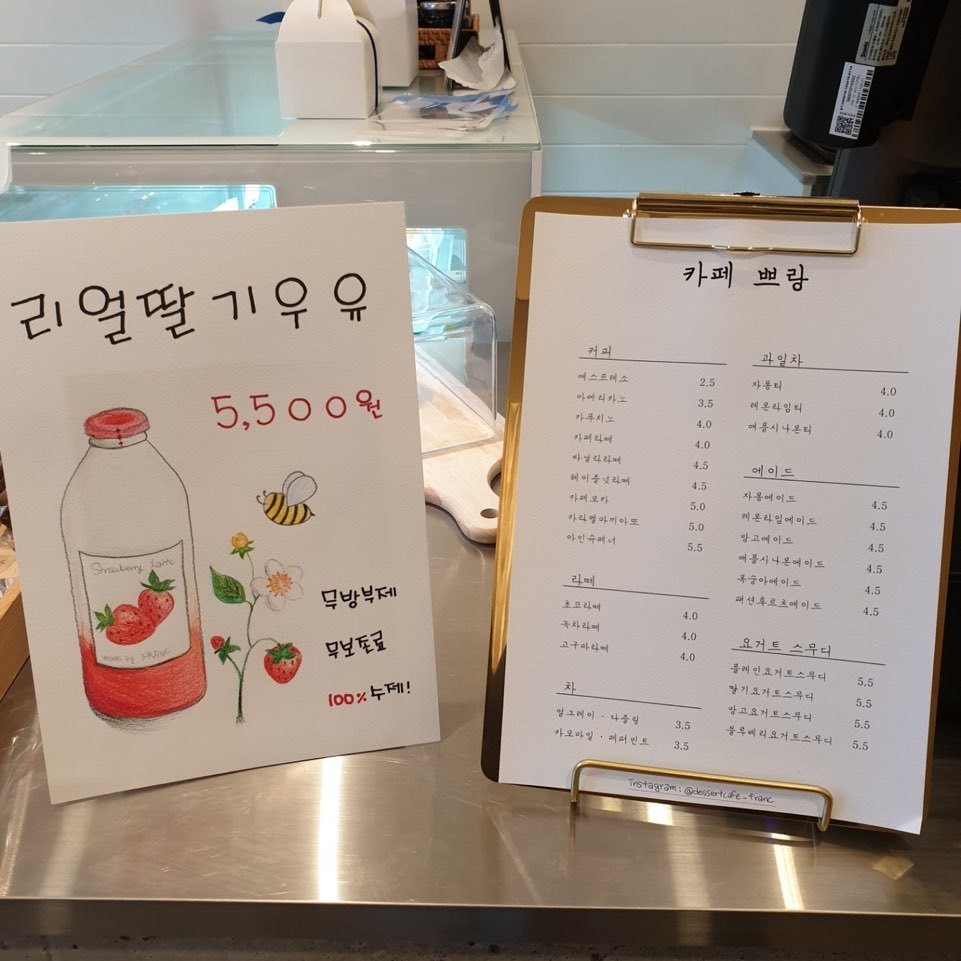 리얼딸기우유
5,500원
Strawberry Latte
made by FRANC
무방부제
무보존료
100% 수제!
카페 쁘랑
커피
에스프레소 2.5
아메리카노 3.5
카푸치노 4.0
카페라떼 4.0
바닐라라떼 4.5
헤이즐넛라떼 4.5
카페모카 5.0
카라멜마끼아또 5.0
아인슈페너 5.5
라떼
초코라떼 4.0
녹차라떼 4.0
고구마라떼 4.0
차
얼그레이 · 다즐링 3.5
카모마일 · 페퍼민트 3.5
과일차
자몽티 4.0
레몬라임티 4.0
애플시나몬티 4.0
에이드
자몽에이드 4.5
레몬라임에이드 4.5
망고에이드 4.5
애플시나몬에이드 4.5
복숭아에이드 4.5
패션후르츠에이드 4.5
요거트 스무디
플레인요거트스무디 5.5
딸기요거트스무디 5.5
망고요거트스무디 5.5
블루베리요거트스무디 5.5
Instagram : @dessertcafe_franc